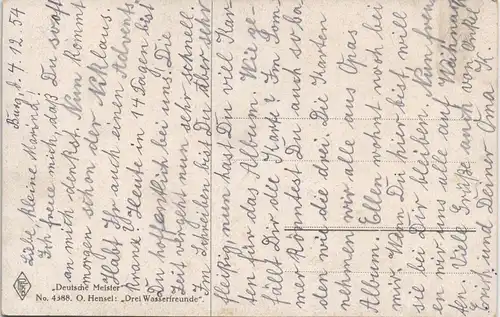 Burg, d. 4.12.54
Liebe kleine
Ich freue mich, daß Du so oft
an mich denkst. Nun kommt
morgen schon der Niklaus.
Habt Ihr auch einen Advents-
kranz? Heute in 14 Tagen bist
Du hoffentlich bei uns. Die
Zeit vergeht nun sehr schnell.
Im Schreiben bist Du aber sehr
fleißig, nun hast Du viel Kar-
ten für das Album. Wie ge-
fällt Dir die Karte? Im Som-
mer könntest Du auch so ba-
den wie die drei. Die Karten
nehmen wir alle aus Opas
Album. Ellen wohnt noch bei
mir. Wenn Du hier bist will
sie bei Dir bleiben. Nun freu-
en wir uns alle auf Weihnach-
ten. Viele Grüße auch von Onkel
Erich und Deiner Oma H.
„Deutsche Meister"
No. 4388. O. Hensel: „Drei Wasserfreunde".